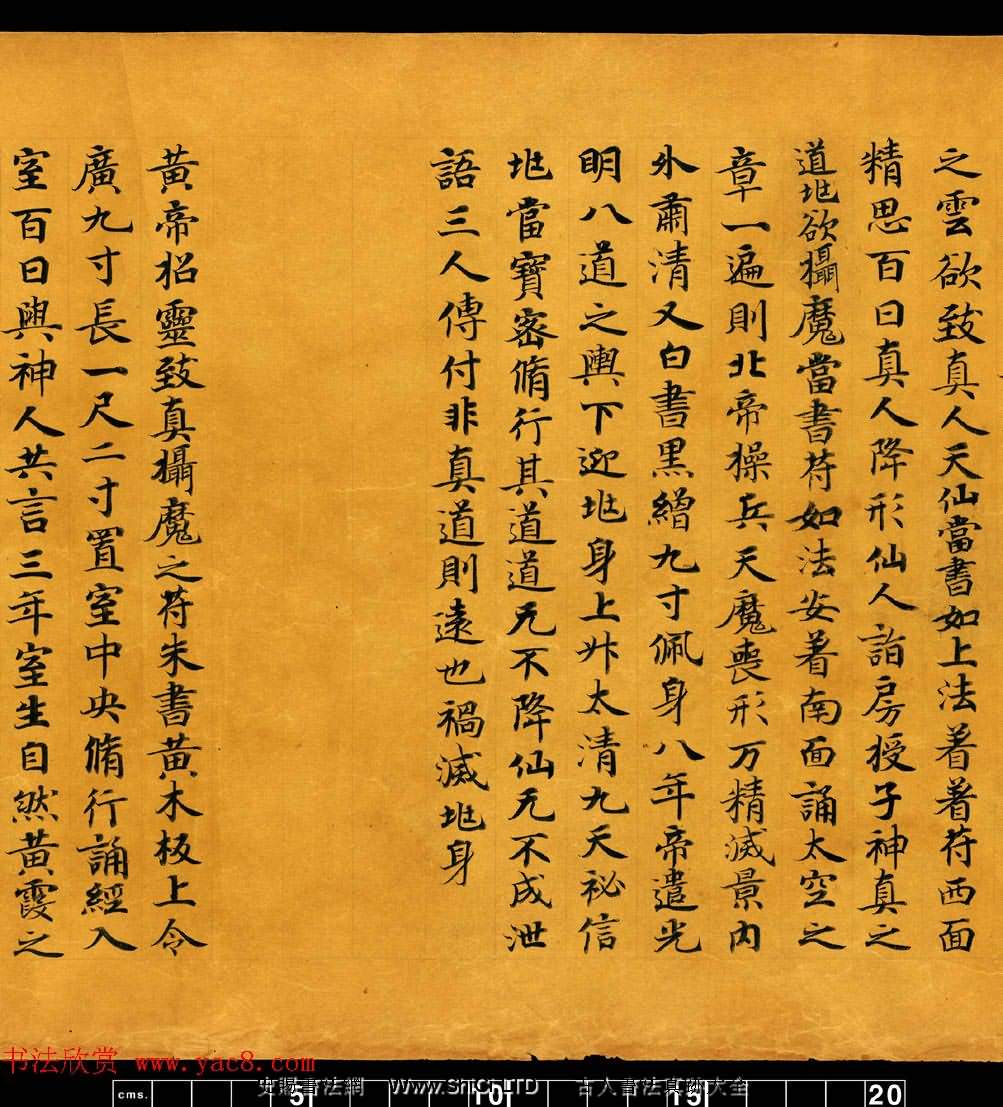 之雲欲致真人天仙當書如上法著著苻西面
精思百日真人降形仙人詣房授子神真之
道地欲攝魔當書苻如法安著南面誦太空之
章一遍則北帝操兵天魔喪形万精滅景內
外肅清又白書黑繒九寸佩身八年帝遣光
明八道之輿下迎地身上升太清九天祕信
地當寶密脩行其道道无不降仙无不成泄
語三人傳付非真道則遠也禍滅地身
黃帝招靈致真攝魔之苻朱書黃木板上令
廣九寸長一尺二寸置室中央脩行誦經入
室百日與神人共言三年室生自然黃霞之
书法欣赏 www.yac8.com
cms. 5 10 15 20
史賜書法網 www.ShiCi.LTD 古人書法真跡大全